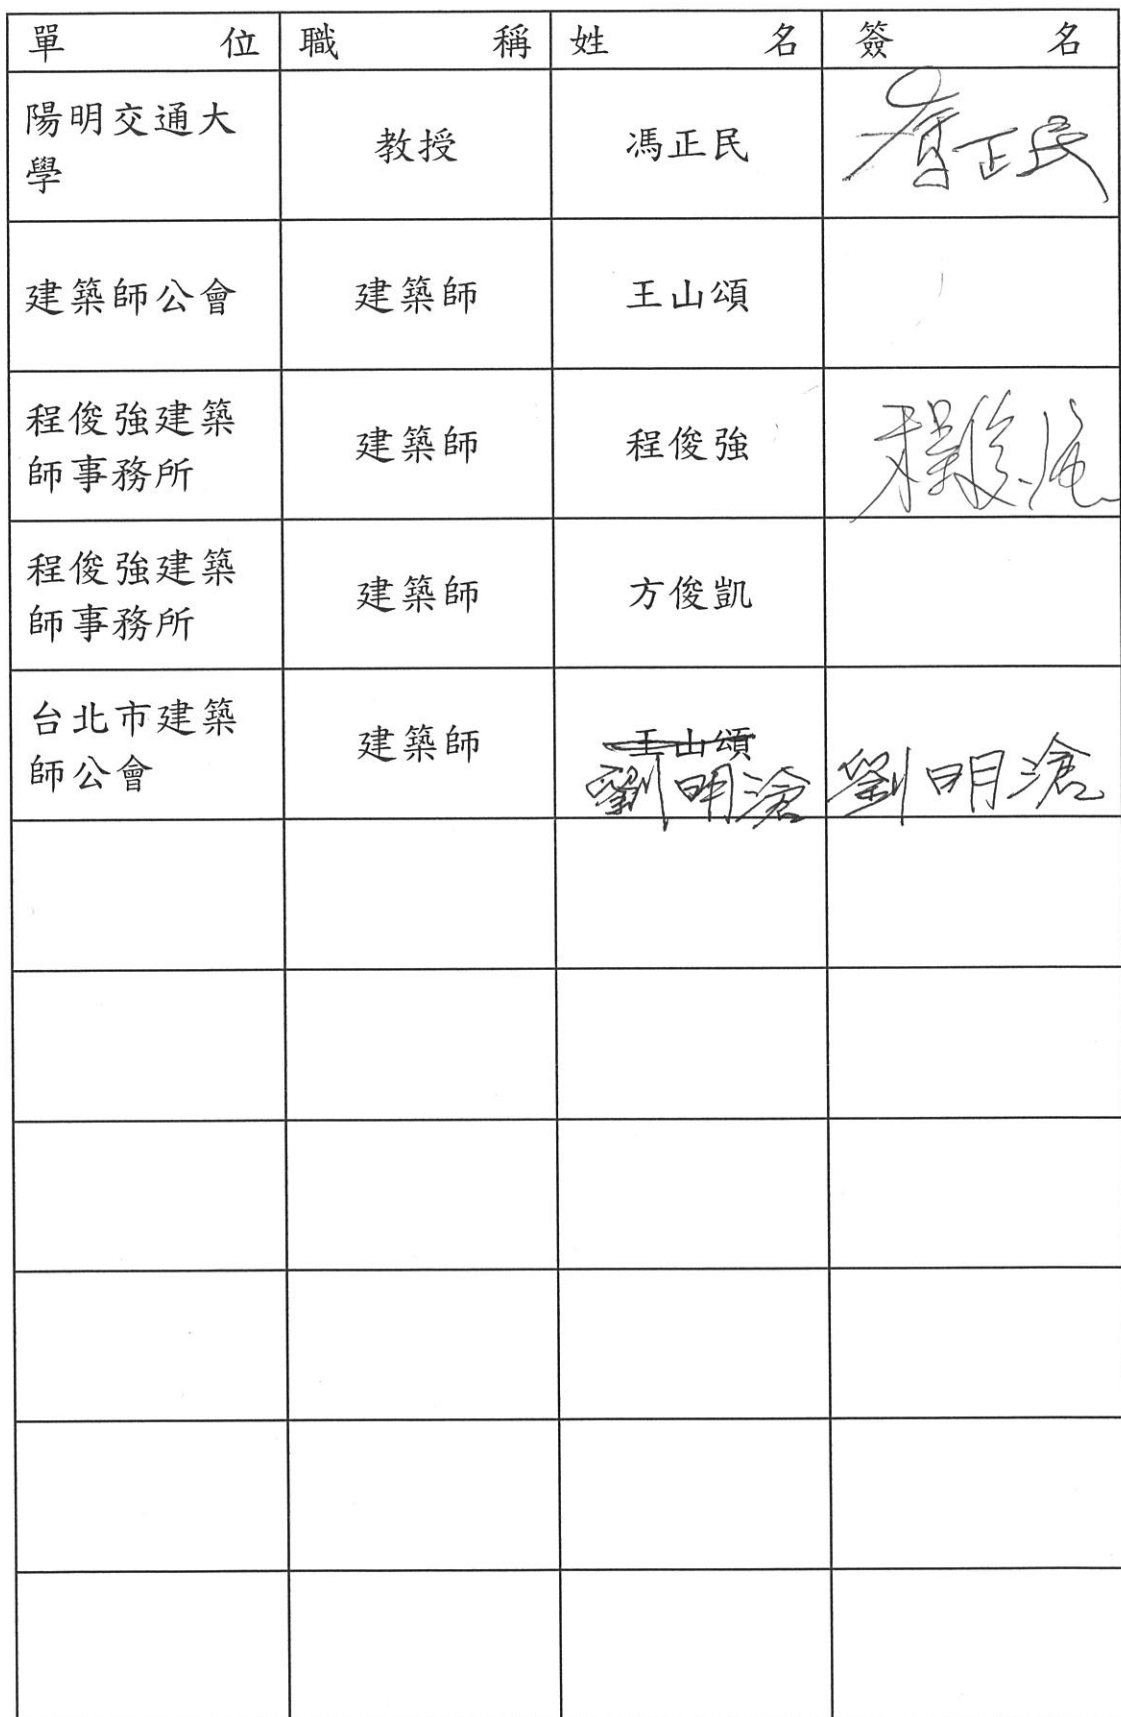 單位 職稱 姓名 簽名
陽明交通大
學
教授 馮正民 馮正民
建築師公會 建築師 王山頌
程俊強建築
師事務所
建築師 程俊強 程俊強
程俊強建築
師事務所
建築師 方俊凱
台北市建築
師公會
建築師 王山頌
劉明滄 劉明滄